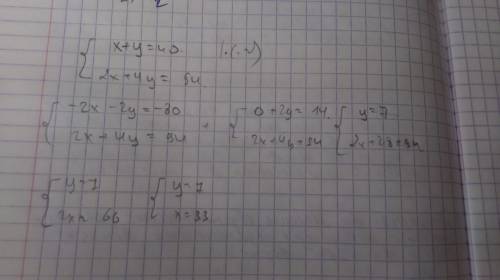 { x+y=40 |·(-2)
{ 2x+4y= 94
{ -2x-2y=-80
{ 2x+4y=94
{ 0+2y=14
{ 2x+4y=94
{ y=7
{ 2x+28=94
{ y=7
{ 2x=66
{ y=7
{ x=33